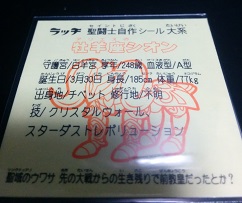 ラッチ 聖闘士自作シール大系
牡羊座シオン
守護宮/白羊宮 享年/248歳 血液型/A型
誕生日/3月30日 身長/185cm 体重/77kg
出身地/チベット 修行地/不明
技/クリスタルウォール
スターダストレボリューション
聖域のウワサ 先の大戦からの生き残りで前教皇だったとか？